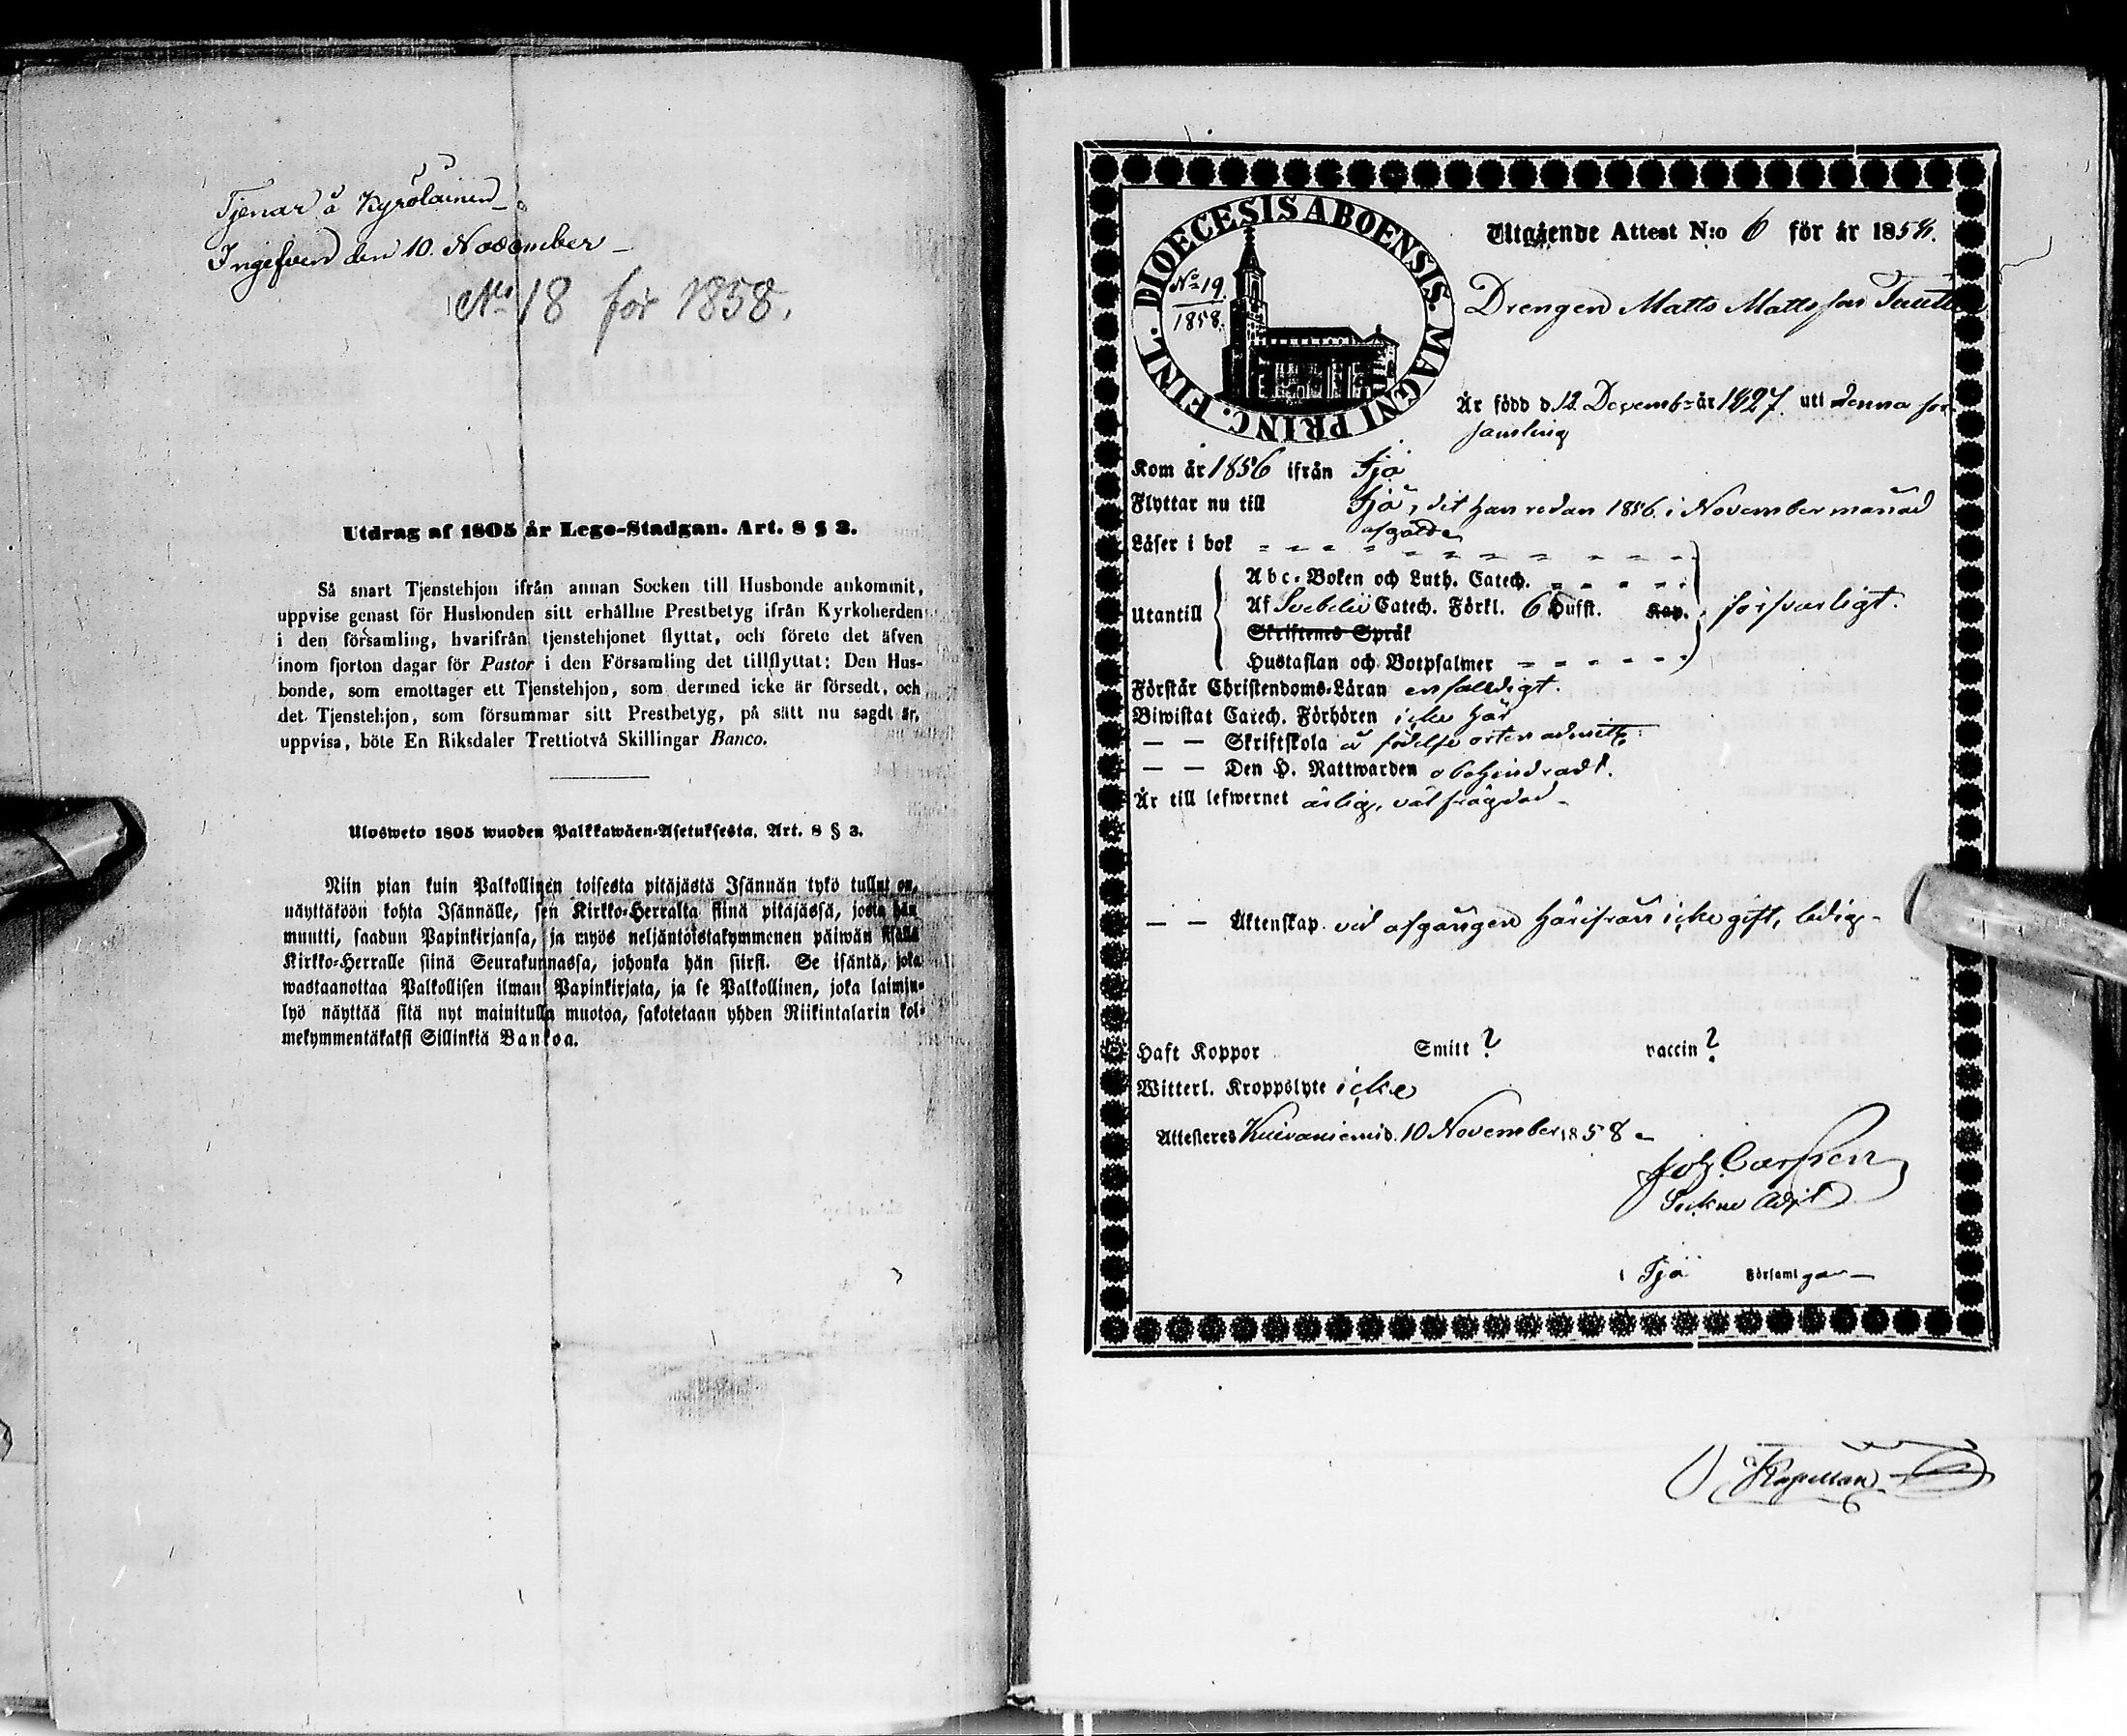 Tjenar å Kyrölainen
Ingifven den 10. November
No 18 för 1858.
Utdrag af 1805 år Lego-Stadgan. Art. 8 § 3.
Så snart Tjenstehjon ifrån annan Socken till Husbonde ankommit,
uppvise genast för Husbonden sitt erhållne Prestbetyg ifrån Kyrkoherden
i den församling, hvarifrån tjenstehjonet flyttat, och förete det äfven
inom fjorton dagar för Pastor i den Församling det tillflyttat: Den Hus-
bonde, som emottager ett Tjenstehjon, som dermed icke är försedt, och
det Tjenstehjon, som försummar sitt Prestbetyg, på sätt nu sagdt är,
uppvisa, böte En Riksdaler Trettiotvå Skillingar Banco.
Ulosweto 1805 wuoden Palkkawäen-Asetuksesta. Art. 8 § 3.
Niin pian kuin Palkollinen toisesta pitäjästä Isännän tykö tullut on,
näyttäköön kohta Isännälle, sen Kirkko-Herralta siinä pitäjässä, josta hän
muutti, saadun Papinkirjansa, ja myös neljäntoistakymmenen päiwän sisällä
Kirkko-Herralle siinä Seurakunnassa, johonka hän siirsi. Se isäntä, joka
wastaanottaa Palkollisen ilman Papinkirjata, ja se Palkollinen, joka laimin-
lyö näyttää sitä nyt mainitulla muotoa, sakotetaan yhden Riikintalarin kol-
mekymmentäkaksi Sillinkiä Bankoa.
DIOECESIS ABOENSIS. MAGNI PRINC. FINL.
No 19
1858.
Utgående Attest N:o 6 för år 185
Drengen Matts Mattsson
Är född d 12 Decemb= år 1827. uti denna för
samling
Kom år 1856 ifrån Ijo
Flyttar nu till Ijo, dit han redan 1856 i November månad
afgådde
Läser i bok
Abc-Boken och Luth. Catech.
Utantill Af Svebelii Catech. Förkl. 6 Hufst. Kap. försvarligt.
Skriftenes Språk
Hustaflan och Botpsalmer
Förstår Christendoms-Läran enfaldigt.
Biwistat Catech. Förhören icke här
— — Skriftskola å födelse orten
— — Den H. Nattwarden obehindradt.
Är till lefwernet ärlig, väl frägdad
— — Äktenskap vid afgången härifrån icke gift, ledig
Haft Koppor Smitt ? vaccin ?
Witterl. Kroppslyte icke
Attesteras Kuivaniemi d. 10 November 1858
Joh. Carlsen
Sockne Adjt
i Ijo Församl gar
Kapellan